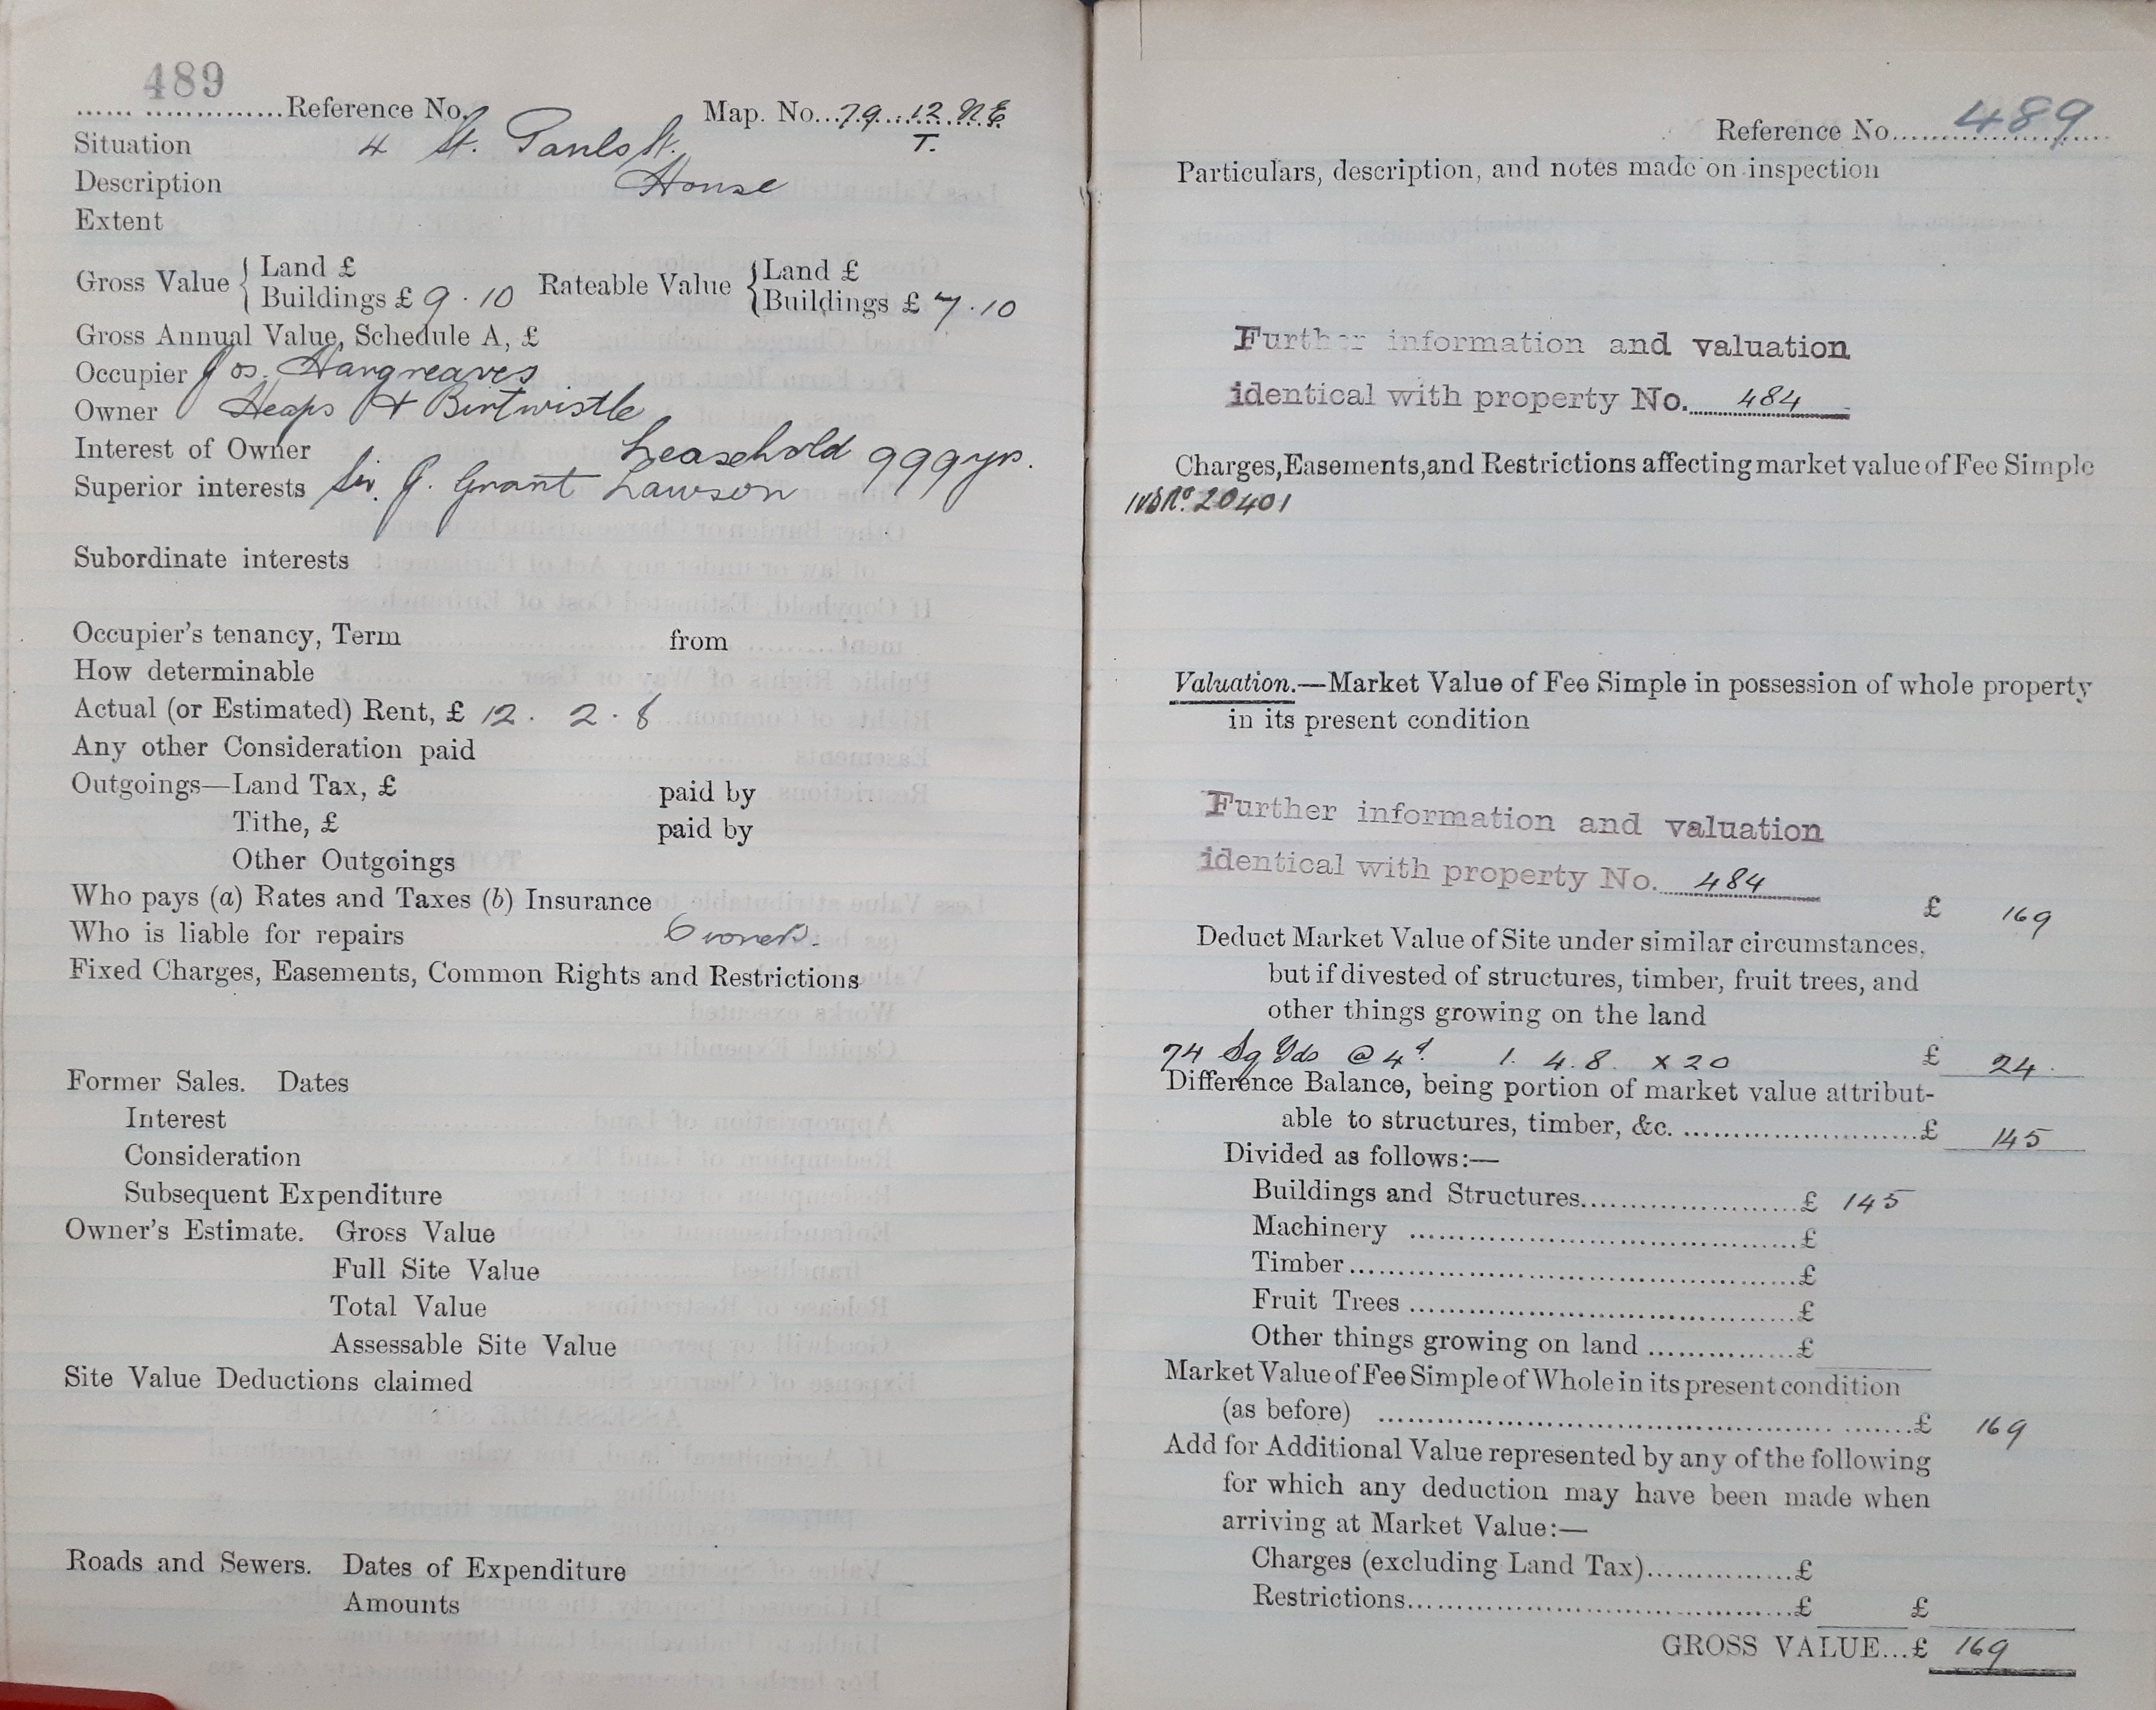 489
Reference No. Map. No. 79.12. N.E.
T.
Situation 4 St. Pauls St.
Description House
Extent
Gross Value { Land £
Buildings £ 9.10
Rateable Value { Land £
Buildings £ 7.10
Gross Annual Value, Schedule A, £
Occupier Jos. Hargreaves
Owner Heaps & Birtwistle
Interest of Owner Leasehold 999 yrs.
Superior interests Sir. J. Grant Lawson
Subordinate interests
Occupier's tenancy, Term from
How determinable
Actual (or Estimated) Rent, £ 12. 2. 8
Any other Consideration paid
Outgoings—Land Tax, £ paid by
Tithe, £ paid by
Other Outgoings
Who pays (a) Rates and Taxes (b) Insurance
Who is liable for repairs Owners.
Fixed Charges, Easements, Common Rights and Restrictions
Former Sales. Dates
Interest
Consideration
Subsequent Expenditure
Owner's Estimate. Gross Value
Full Site Value
Total Value
Assessable Site Value
Site Value Deductions claimed
Roads and Sewers. Dates of Expenditure
Amounts
Reference No. 489
Particulars, description, and notes made on inspection
Further information and valuation
identical with property No. 484
Charges, Easements, and Restrictions affecting market value of Fee Simple
No. 20401
Valuation.—Market Value of Fee Simple in possession of whole property
in its present condition
Further information and valuation
identical with property No. 484
£ 169
Deduct Market Value of Site under similar circumstances,
but if divested of structures, timber, fruit trees, and
other things growing on the land
74 Sq Yds @ 4d. 1. 4. 8. x 20 £ 24.
Difference Balance, being portion of market value attribut-
able to structures, timber, &c. £ 145
Divided as follows:—
Buildings and Structures £ 145
Machinery £
Timber £
Fruit Trees £
Other things growing on land £
Market Value of Fee Simple of Whole in its present condition
(as before) £ 169
Add for Additional Value represented by any of the following
for which any deduction may have been made when
arriving at Market Value:—
Charges (excluding Land Tax) £
Restrictions £ £
GROSS VALUE...£ 169